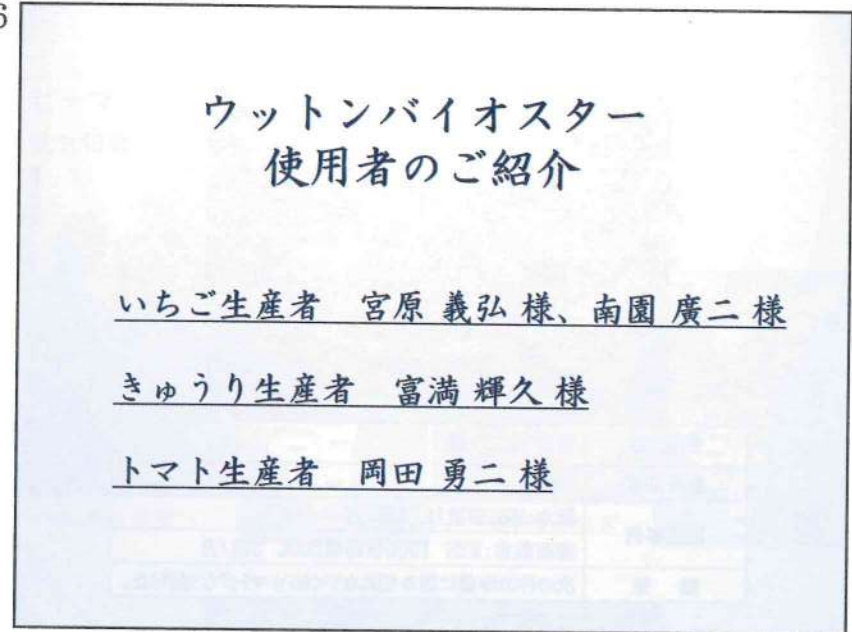 6
ウットンバイオスター
使用者のご紹介
いちご生産者　宮原 義弘 様、南園 廣二 様
きゅうり生産者　富満 輝久 様
トマト生産者　岡田 勇二 様